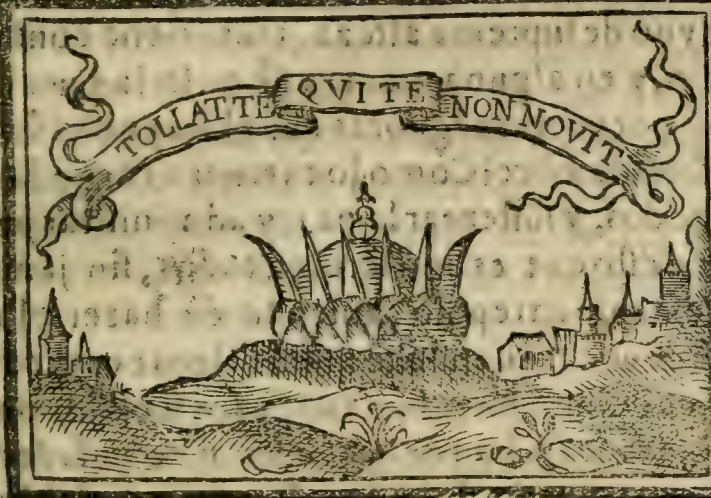 TOLLAT TE QVI TE NON NOVIT